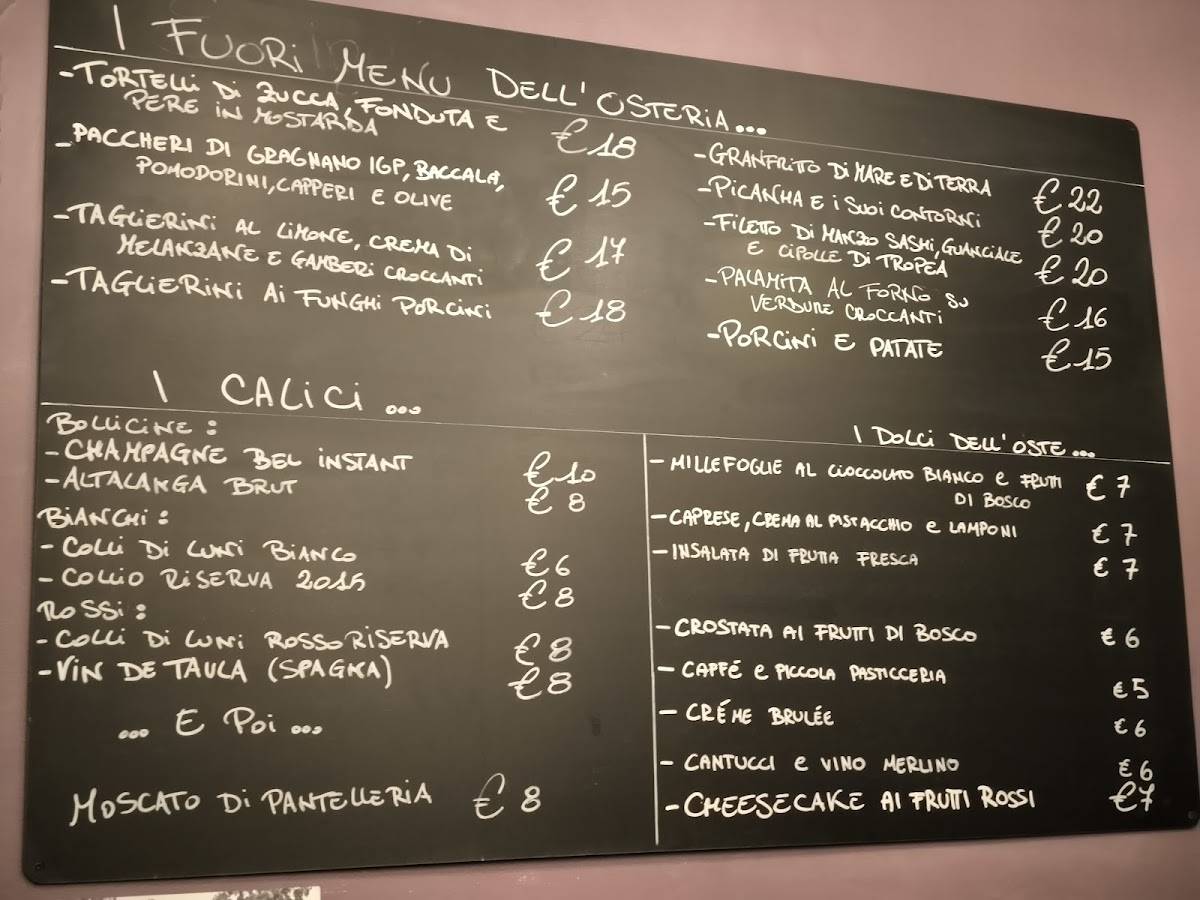 I FUORI MENU DELL'OSTERIA...
- TORTELLI DI ZUCCA, FONDUTA E
PERE IN MOSTARDA € 18
- PACCHERI DI GRAGNANO IGP, BACCALÀ,
POMODORINI, CAPPERI E OLIVE € 15
- TAGLIERINI AL LIMONE, CREMA DI
MELANZANE E GAMBERI CROCCANTI € 17
- TAGLIERINI AI FUNGHI PORCINI € 18
- GRANFRITTO DI MARE E DI TERRA € 22
- PICANHA E I SUOI CONTORNI € 20
- FILETTO DI MANZO SASHI, GUANCIALE
E CIPOLLE DI TROPEA € 20
- PALAMITA AL FORNO SU
VERDURE CROCCANTI € 16
- PORCINI E PATATE € 15
I CALICI ...
BOLLICINE :
- CHAMPAGNE BEL INSTANT € 10
- ALTALANGA BRUT € 8
BIANCHI :
- COLLI DI LUNI BIANCO € 6
- COLLIO RISERVA 2015 € 8
ROSSI :
- COLLI DI LUNI ROSSO RISERVA € 8
- VIN DE TAULA (SPAGNA) € 8
... E POI ...
MOSCATO DI PANTELLERIA € 8
I DOLCI DELL'OSTE...
- MILLEFOGLIE AL CIOCCOLATO BIANCO E FRUTTI
DI BOSCO € 7
- CAPRESE, CREMA AL PISTACCHIO e LAMPONI € 7
- INSALATA DI FRUTTA FRESCA € 7
- CROSTATA AI FRUTTI DI BOSCO € 6
- CAFFÉ e PICCOLA PASTICCERIA € 5
- CRÉME BRULÉE € 6
- CANTUCCI e VINO MERLINO € 6
- CHEESECAKE AI FRUTTI ROSSI € 7